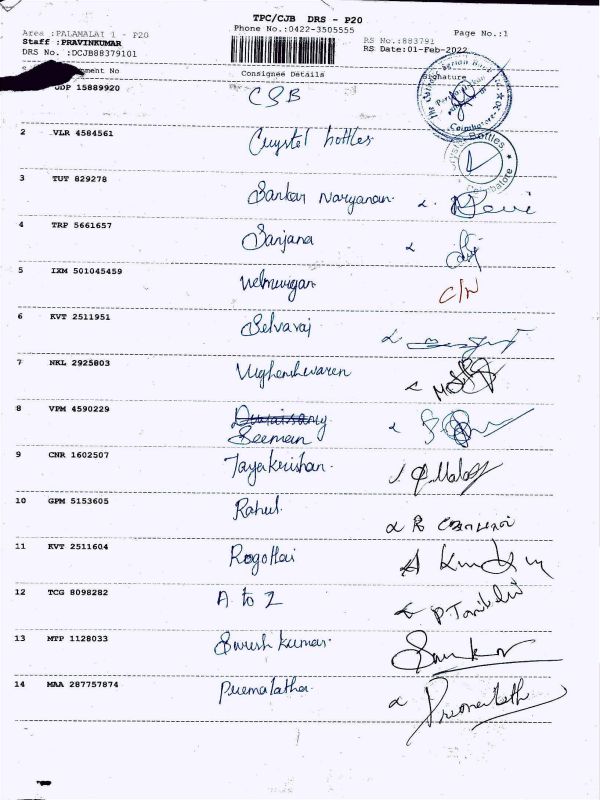 TPC/CJB DRS - P20
Area :PALAMALAI 1 - P20 Phone No.:0422-3505555 Page No.:1
Staff :PRAVINKUMAR RS No.:883791
DRS No. :DCJB88379101 RS Date:01-Feb-2022
S ment No Consignee Details Signature
UDP 15889920 CSB
Coimbatore
2 VLR 4584561 Crystel bottles
Crystel Bottles Coimbatore
3 TUT 829278 Sankar Naryanan.
4 TRP 5661657 Sanjana
5 IXM 501045459 Velmurigan C/N
6 KVT 2511951 Selvaraj
7 NKL 2925803 Vigheneshwaren
8 VPM 4590229 Duraisamy
Seeman
9 CNR 1602507 Jayakrishan.
10 GPM 5153605 Rahul.
11 KVT 2511604 Rogottai
12 TCG 8098282 A to Z
13 MTP 1128033 Suresh kumar.
14 MAA 287757874 Premalatha.